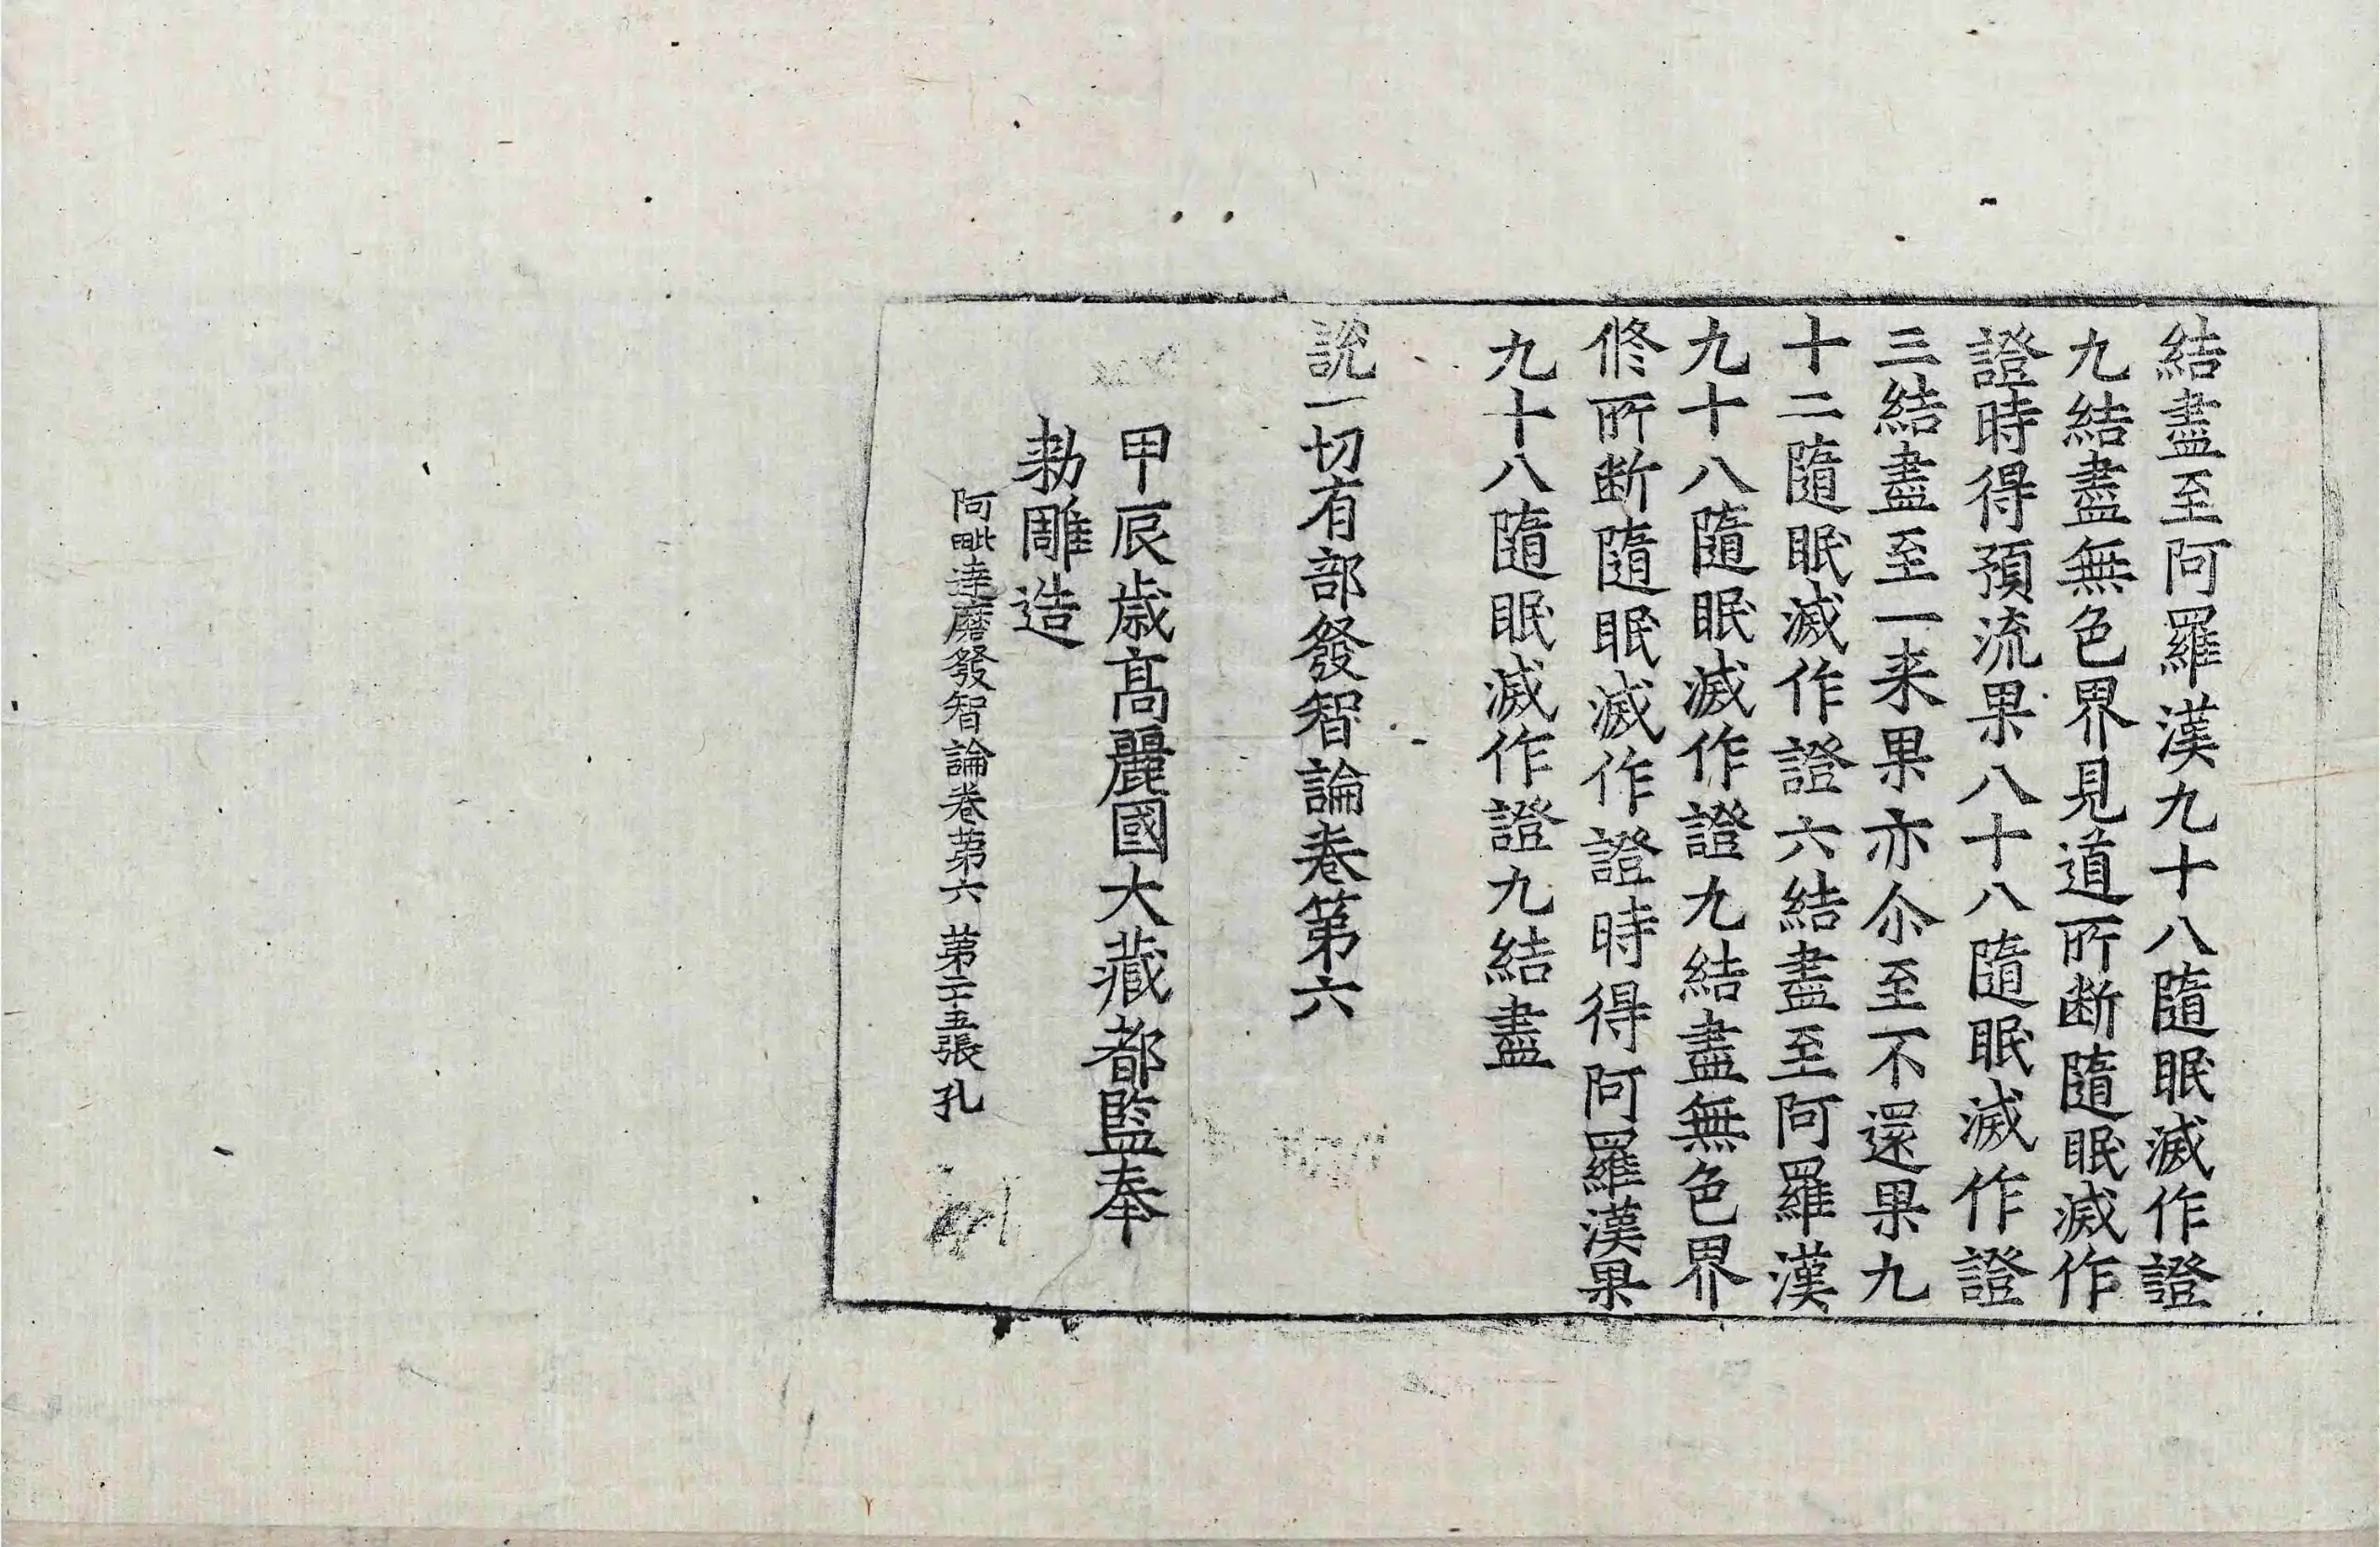 結盡至阿羅漢九十八隨眠滅作證
九結盡無色界見道所断隨眠滅作
證時得預流果八十八隨眠滅作證
三結盡至一来果亦尒至不還果九
十二隨眠滅作證六結盡至阿羅漢
九十八隨眠滅作證九結盡無色界
脩所断隨眠滅作證時得阿羅漢果
九十八隨眠滅作證九結盡
說一切有部發智論卷第六
甲辰歳髙麗國大藏都監奉
勑雕造
阿毗達磨發智論卷苐六 苐二十五張 孔